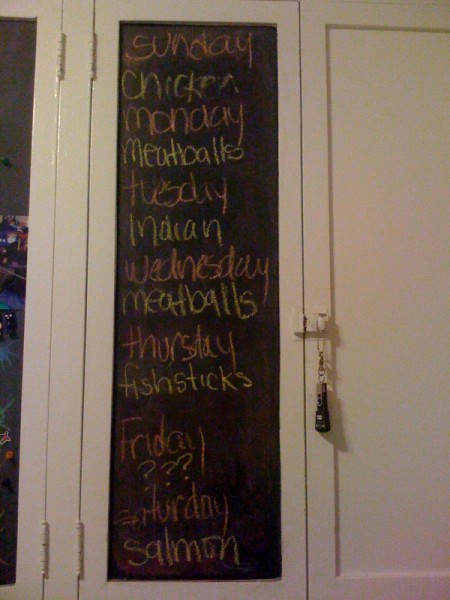 sunday
chicken
monday
meatballs
tuesday
Indian
wednesday
meatballs
thursday
fishsticks
Friday
???
saturday
salmon